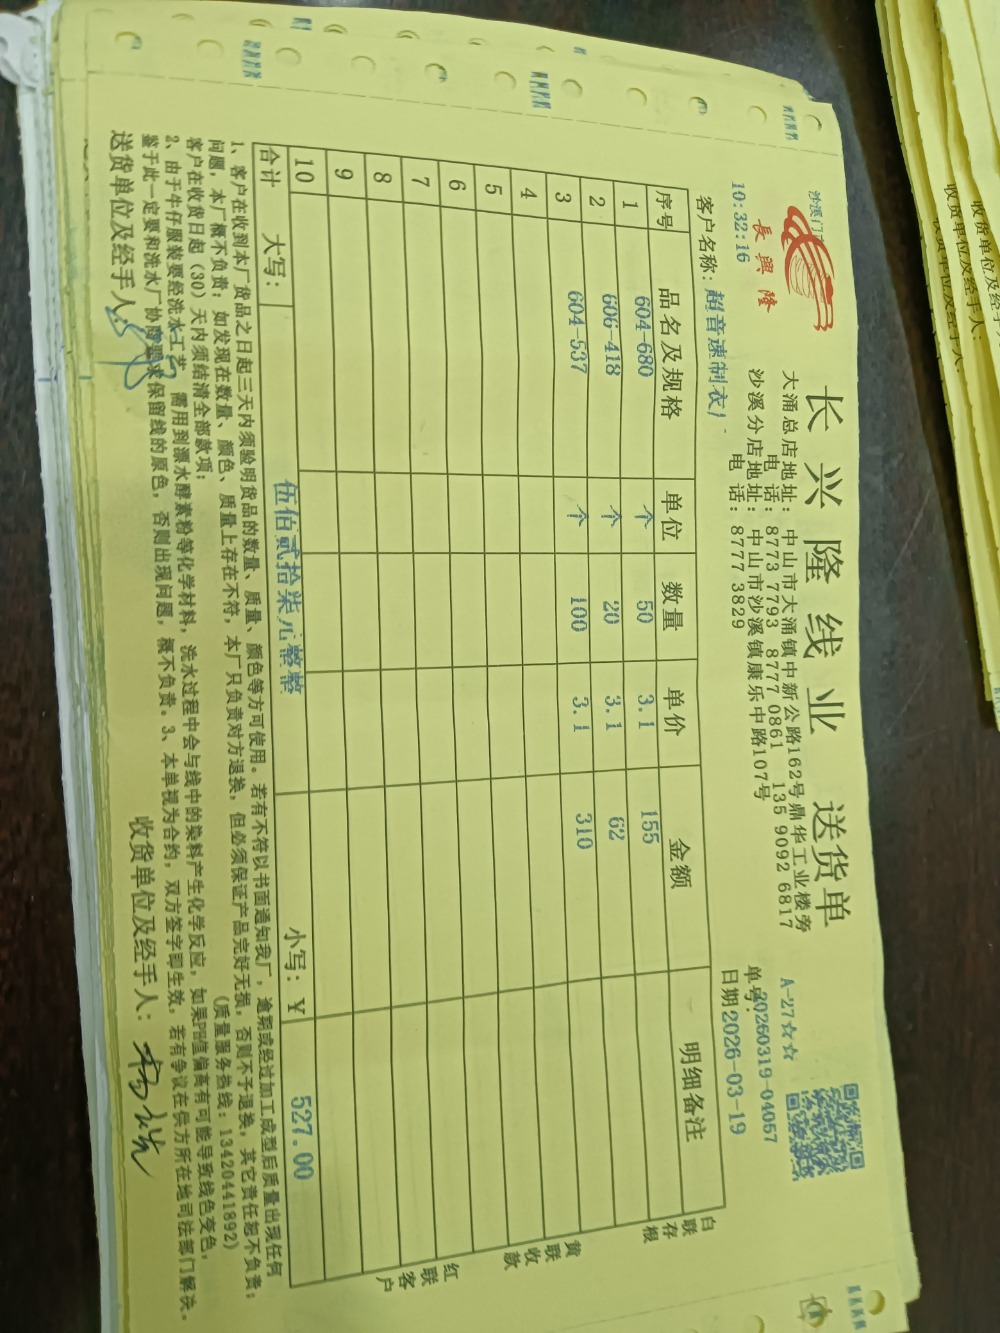 长兴隆线业 送货单
沙溪门市
長興隆
大涌总店地址：中山市大涌镇中新公路162号鼎华工业楼旁
电 话：8773 7793 8777 0861 135 9092 6817
沙溪分店地址：中山市沙溪镇康乐中路107号
电 话：8777 3829
A-27☆☆
单号：20260319-04057
10:32:16
日期2026-03-19
客户名称：超音速制衣厂
序号 品名及规格 单位 数量 单价 金额 明细备注
1 604-680 个 50 3.1 155
2 606-418 个 20 3.1 62
3 604-537 个 100 3.1 310
4
5
6
7
8
9
10
合计 大写：伍佰贰拾柒元整整 小写：￥ 527.00
白联存根
黄联收款
红联客户
1、客户在收到本厂货品之日起三天内须验明货品的数量、质量、颜色等方可使用。若有不符以书面通知我厂，逾期或经过加工成型后质量出现任何
问题，本厂概不负责；如发现在数量、颜色、质量上存在不符，本厂只负责对方退换，但必须保证产品完好无损，否则不予退换，其它责任恕不负责；
客户在收货日起（30）天内须结清全部款项； （质量服务热线：13420441892）
2、由于牛仔服装要经洗水工艺，需用到漂水酵素粉等化学材料，洗水过程中会与线中的染料产生化学反应，如果PH值偏高有可能导致线色变色，
鉴于此一定要和洗水厂协商要求保留线的原色，否则出现问题，概不负责。3、本单视为合约，双方签字即生效，若有争议在供方所在地司法部门解决。
送货单位及经手人：
收货单位及经手人：
收货单位及经手人：
收货单位及经手人：